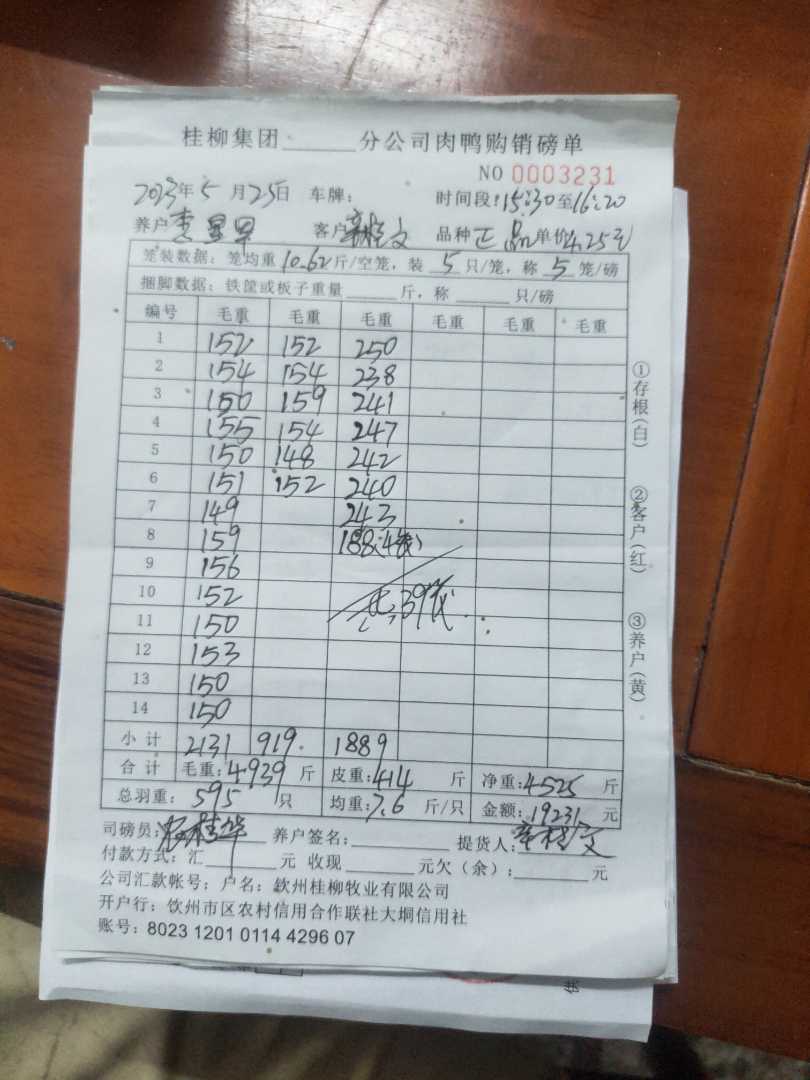 桂柳集团______分公司肉鸭购销磅单
NO 0003231
2023年5月25日 车牌: 时间段:15:30至16:20
养户 李 客户 文 品种 正品 单价4.25元
笼装数据: 笼均重 10.62斤/空笼, 装 5 只/笼, 称 5 笼/磅
捆脚数据: 铁筐或板子重量______斤, 称______只/磅
编号 毛重 毛重 毛重 毛重 毛重 毛重
1 152 152 250
2 154 154 238
3 150 159 241
4 155 154 247
5 150 148 242
6 151 152 240
7 149 243
8 159 188
9 156
10 152
11 150
12 153
13 150
14 150
小计 2131 919 1889
合计 毛重:4939斤 皮重:414 斤 净重:4525斤
总羽重: 595 只 均重:7.6 斤/只 金额:19231元
司磅员: 养户签名:______ 提货人: 文
付款方式: 汇______元 收现______元欠(余):______元
公司汇款帐号; 户名: 钦州桂柳牧业有限公司
开户行: 钦州市区农村信用合作联社大垌信用社
账号: 8023 1201 0114 4296 07
①存根(白)
②客户(红)
③养户(黄)